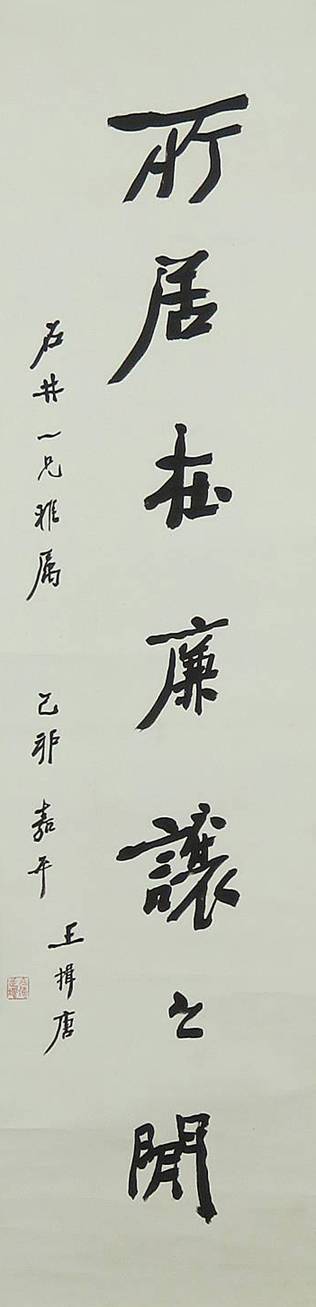 所居在廉讓之間
石井一兄雅属　己卯嘉平　王揖唐